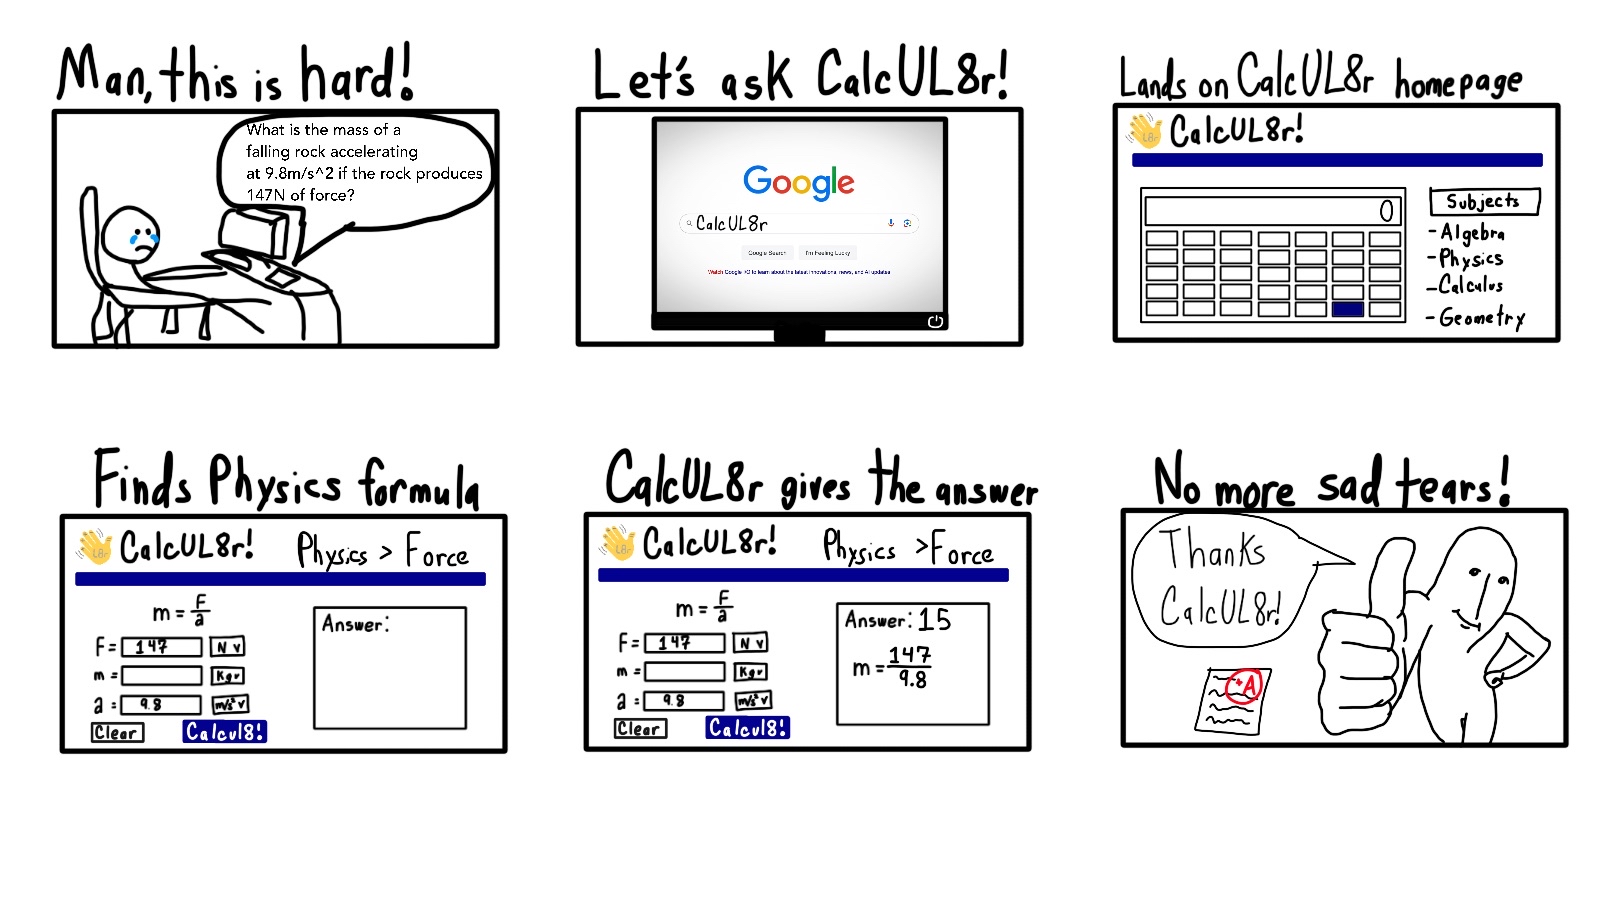 Man, this is hard!
What is the mass of a
falling rock accelerating
at 9.8m/s^2 if the rock produces
147N of force?
Let's ask CalcUL8r!
Google
CalcUL8r
Google Search
I'm Feeling Lucky
Watch Google I/O to learn about the latest innovations, news, and AI updates
Lands on CalcUL8r homepage
L8r
CalcUL8r!
0
Subjects
- Algebra
- Physics
- Calculus
- Geometry
Finds Physics formula
L8r
CalcUL8r!
Physics > Force
m = F/a
F = 147 N v
m = Kg v
a = 9.8 m/s² v
Clear
Calcul8!
Answer:
CalcUL8r gives the answer
L8r
CalcUL8r!
Physics >Force
m = F/a
F = 147 N v
m = Kg v
a = 9.8 m/s² v
Clear
Calcul8!
Answer: 15
m = 147/9.8
No more sad tears!
Thanks
CalcUL8r!
+A